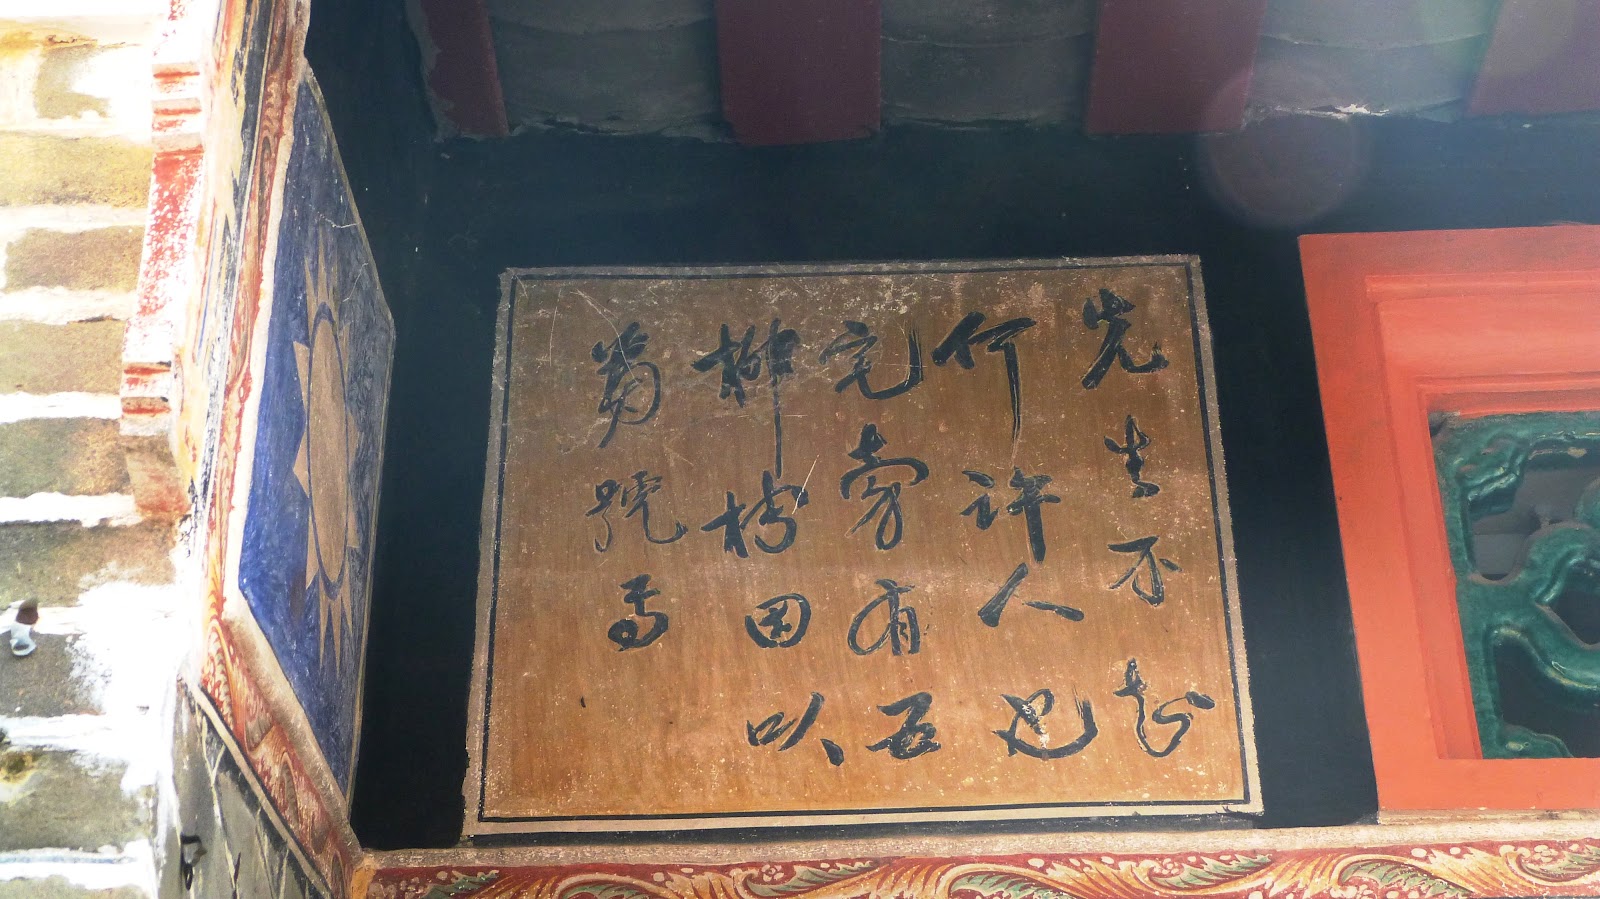 先生不知
何許人也
宅旁有五
柳樹因以
為號焉